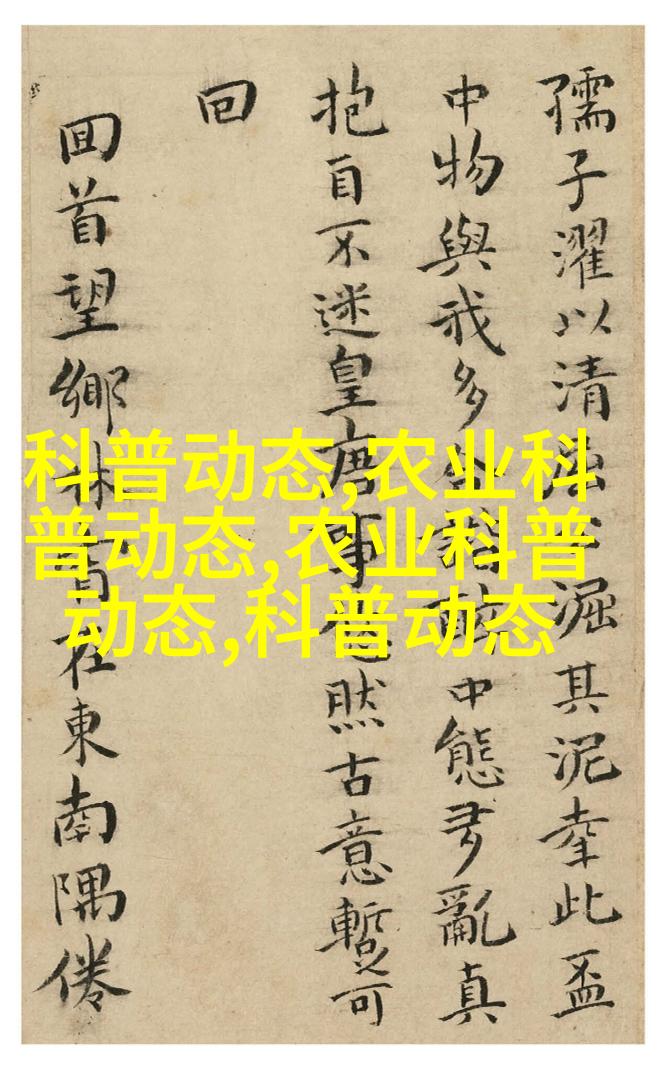 孺子濯以清淈其泥此盃
中物與我多中態亂真
抱自不迷皇唐然古意暫可
回
回首望鄉林在東南隅倦
科普动态,农业科
普动态,农业科普
动态,科普动态